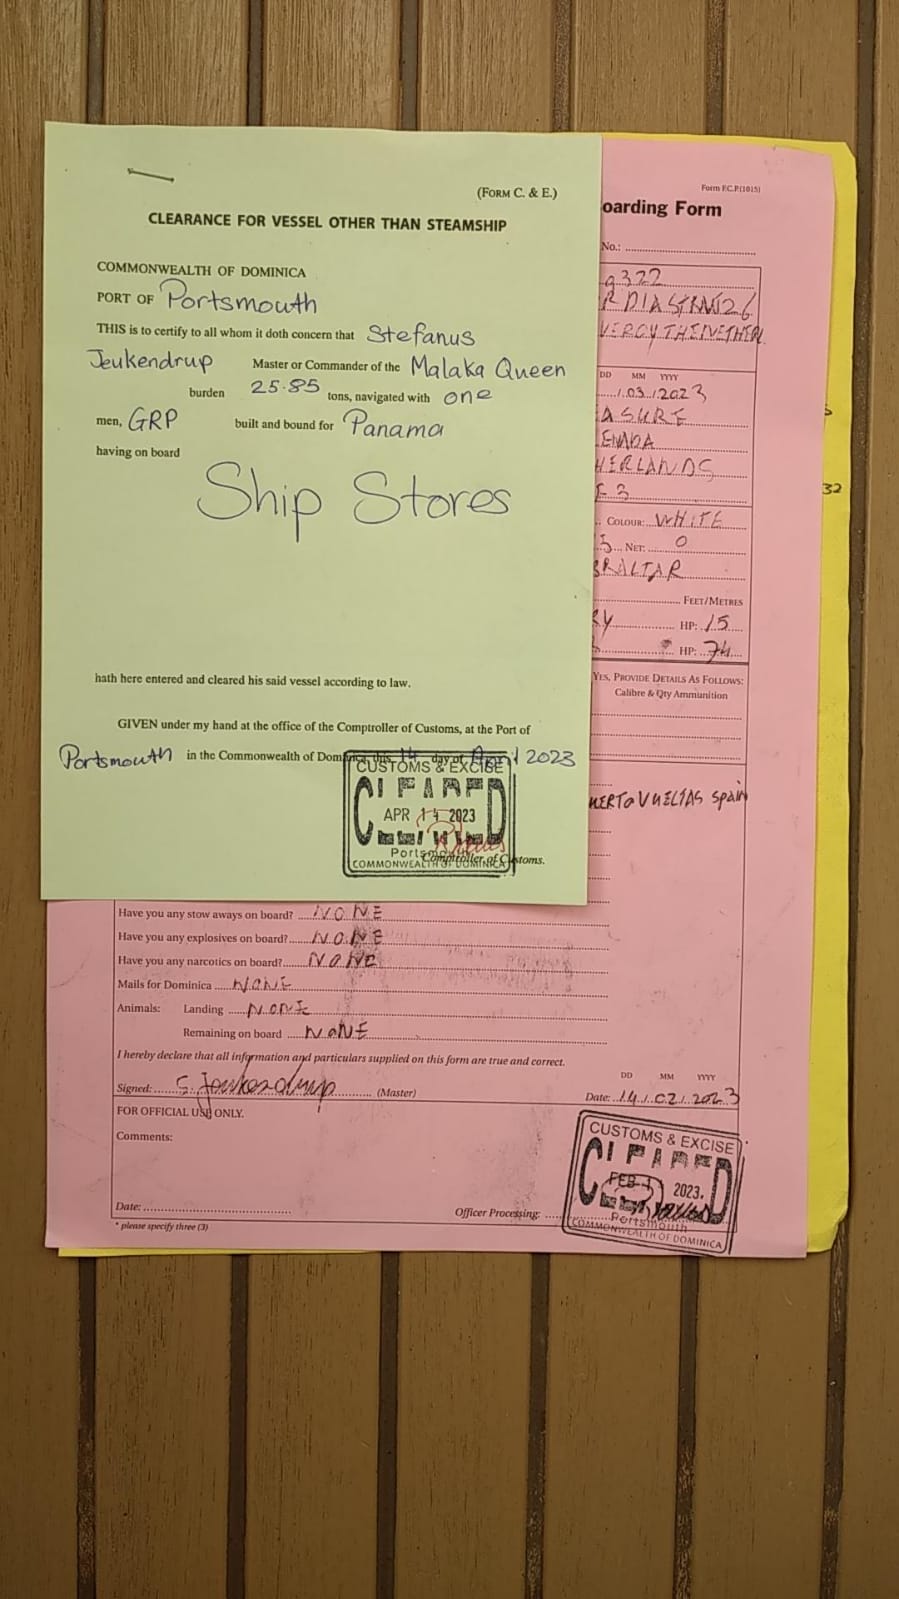 (FORM C. & E.)
CLEARANCE FOR VESSEL OTHER THAN STEAMSHIP
COMMONWEALTH OF DOMINICA
PORT OF Portsmouth
THIS is to certify to all whom it doth concern that Stefanus
Jeukendrup Master or Commander of the Malaka Queen
burden 25.85 tons, navigated with one
men, GRP built and bound for Panama
having on board
Ship Stores
hath here entered and cleared his said vessel according to law.
GIVEN under my hand at the office of the Comptroller of Customs, at the Port of
Portsmouth in the Commonwealth of Dominica this 14 day of April 2023
CUSTOMS & EXCISE
CLEARED
APR 14 2023
Portsmouth
COMMONWEALTH OF DOMINICA
Comptroller of Customs.
Form F.C.P.(1015)
oarding Form
No.:
9322
DD MM YYYY
03/2023
ASURE
ENADA
HERLANDS
3
COLOUR: WHITE
5 NET: 0
BRALTAR
FEET/METRES
RY HP: 15
HP: 74
YES, PROVIDE DETAILS AS FOLLOWS:
Calibre & Qty Ammunition
UERTO VUELTAS Spain
32
Have you any stow aways on board? NONE
Have you any explosives on board? NONE
Have you any narcotics on board? NONE
Mails for Dominica NONE
Animals: Landing NONE
Remaining on board NONE
I hereby declare that all information and particulars supplied on this form are true and correct.
DD MM YYYY
Signed: S. Jeukendrup (Master) Date: 14/02/2023
FOR OFFICIAL USE ONLY.
Comments:
CUSTOMS & EXCISE
CLEARED
FEB 2023.
Portsmouth
COMMONWEALTH OF DOMINICA
Date: Officer Processing:
* please specify three (3)